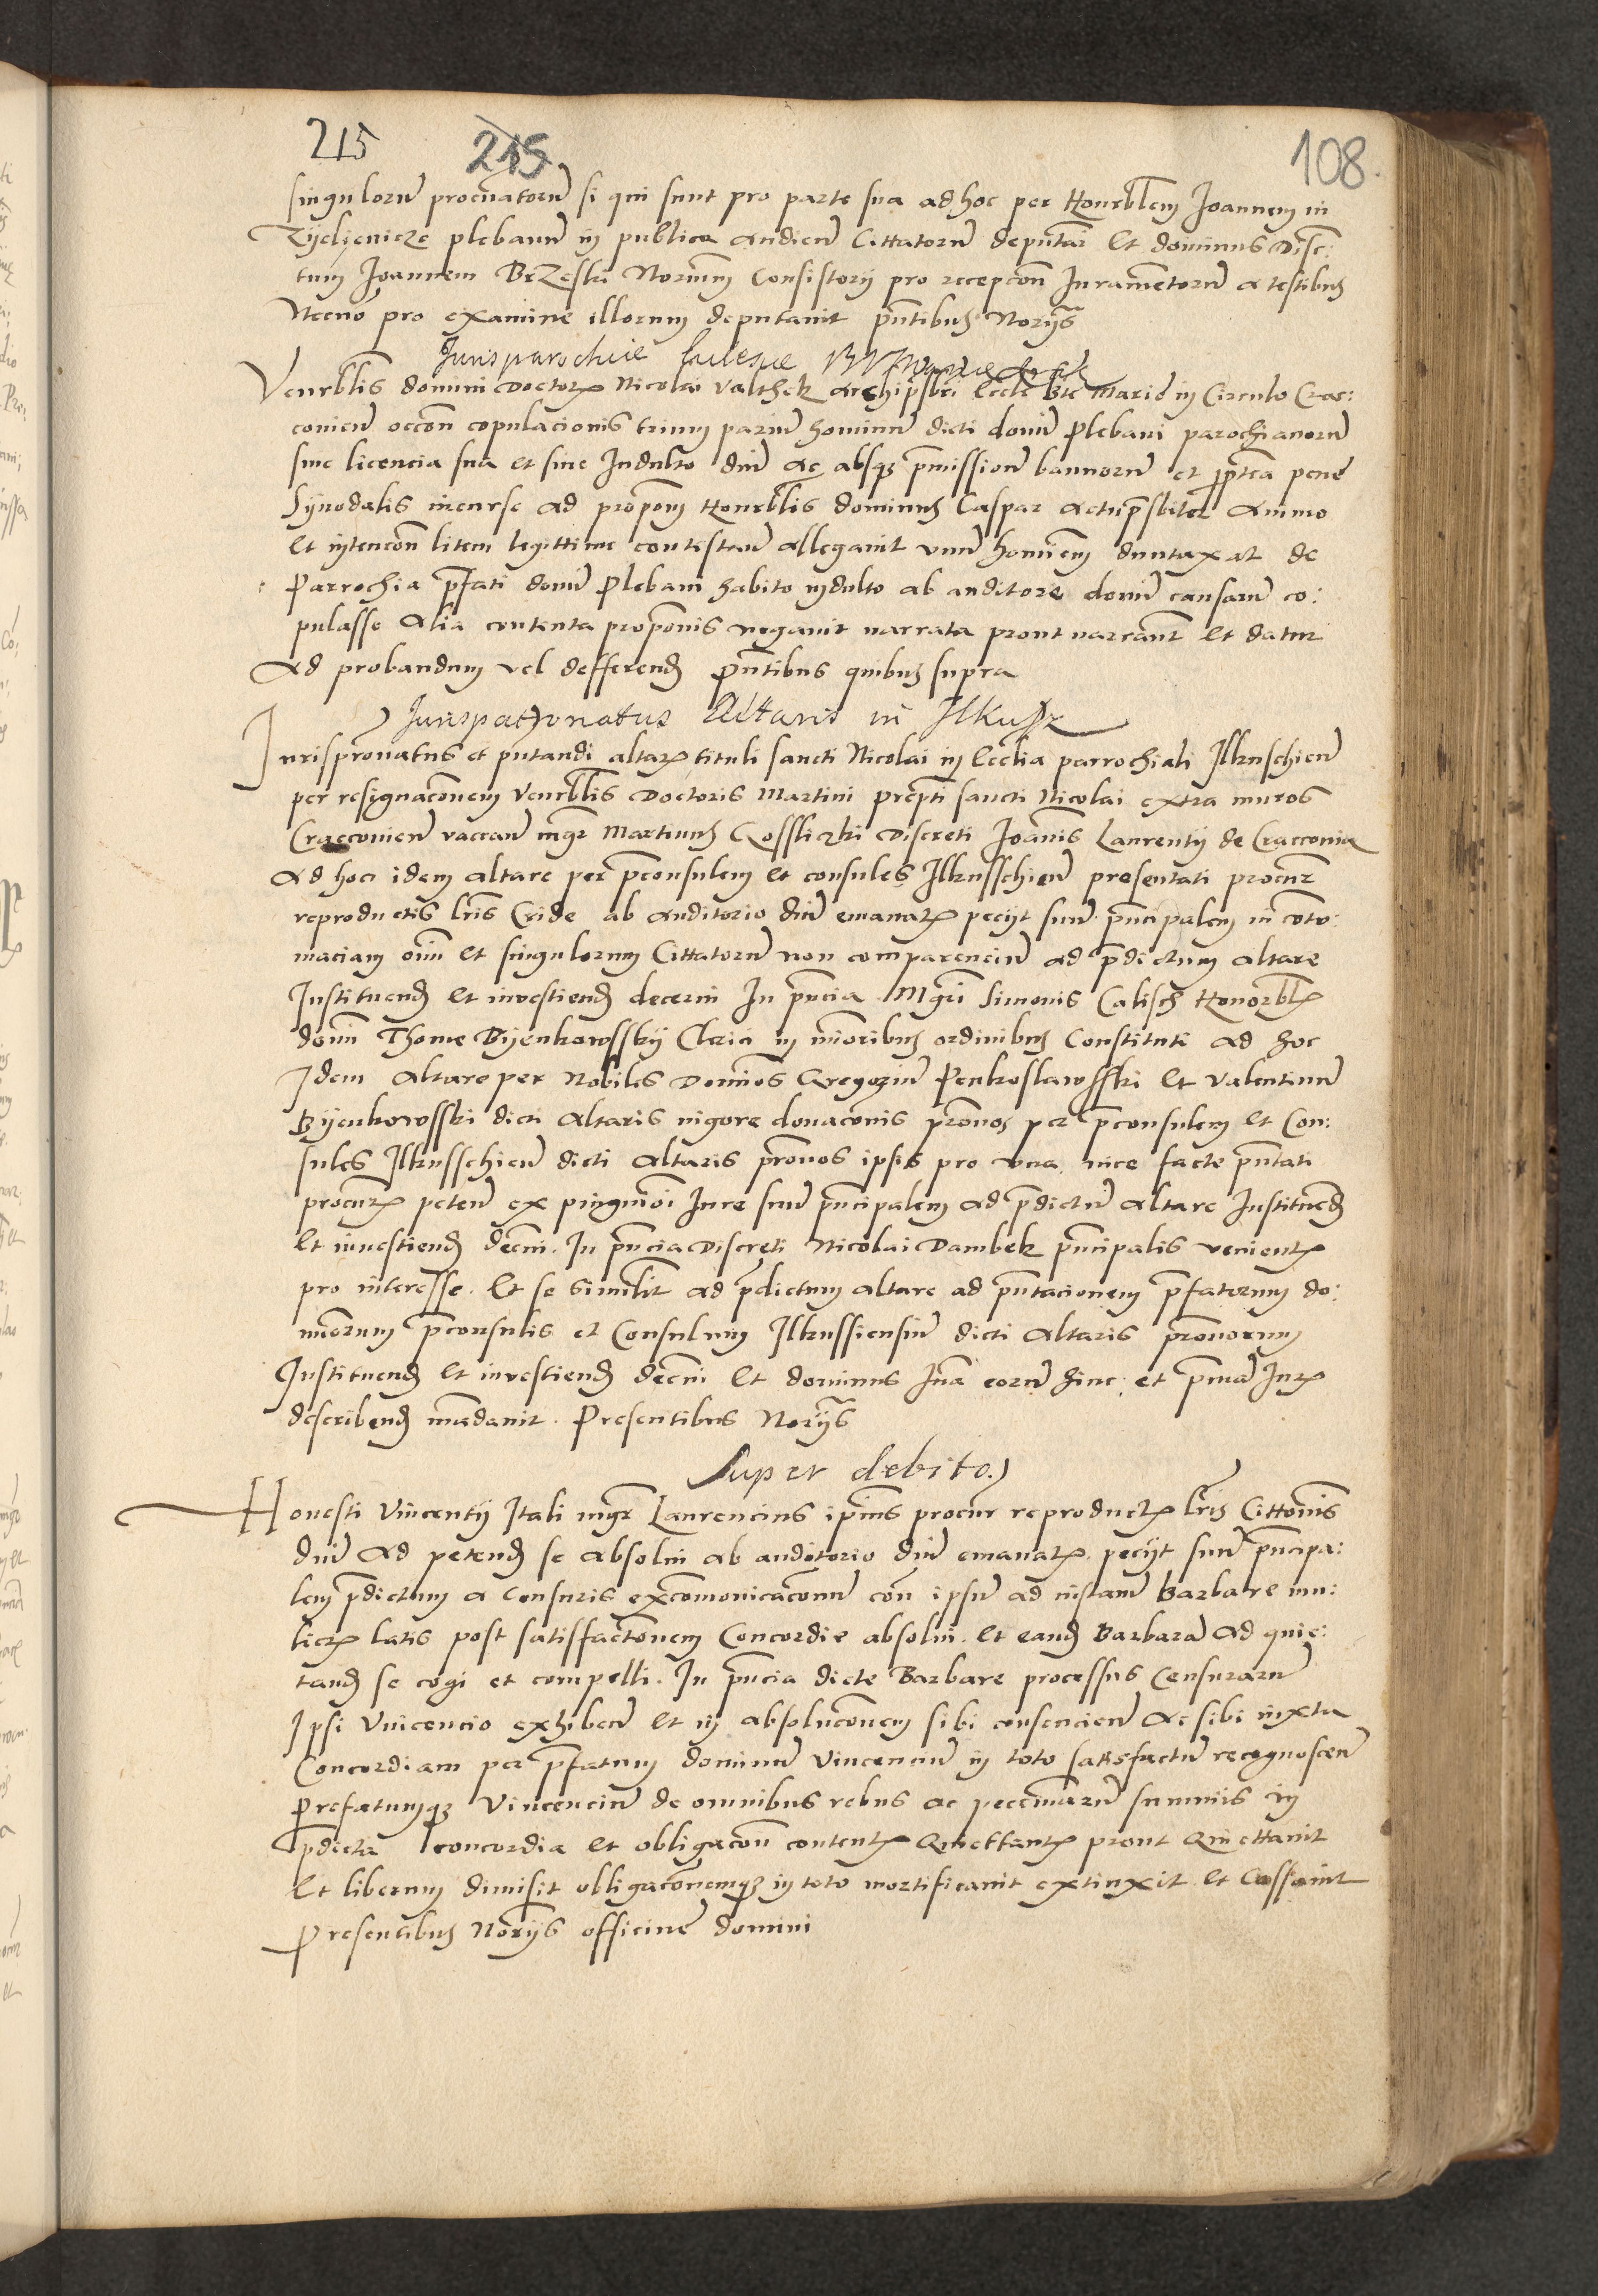 215 215 108
singulorum procuratorum si qui sunt pro parte sua ad hoc per Honrblem Joannem in
plebanum in publica audien Cittatorum deputari Et dominus Disc:
tum Joannem BrZeski Norium Consistorij pro recepcon Juramentorum a testibus
Necno pro examine illorum deputauit pntibus Norijs
Jurisparochiie Eclesie BV Marie
Venrblis domini Doctoris Nicolai Valthek archipsbri Eccle Bte Marie in Circulo Crac:
couien occon copulacionis trium parium hominum dicti domi Plebani parochianorum
sine licencia sua et sine Indulto dni ac absq pmissione bannorum et ptea pene
Synodalis incurse ad propom Honrblis dominus Caspar actupsbiter animo
et intencon litem legittime contestan allegauit vnum hominem duntaxat de
Parrochia pfati domi Plebani habito indulto ab auditore domi causarum co:
pulasse Alia contenta proponis negauit narrata prout narrant Et datur
Ad probandum vel defferend pntibus quibus supra
Jurispatronatus Altaris in Ilkusz
Jurispronatus et pntandi altaris tituli sancti Nicolai in Ecclia parrochiali Ilkuschien
per resignaconem Venrblis Doctoris Martini prepti sancti Nicolai extra muros
Cracconien vaccan mgr Martinus Discreti Joannis Laurentij de Cracconia
ad hoc idem altare per pconsulem et consules Ilkusschien presentati procur
reproductis lris Cride ab auditorio dni emanatis pecijt suum pncipalem in conto:
maciam oim et singulorum Cittatorum non comparencium ad pdictum altare
Instituend et inuestiend decerni In pncia Mgri Simonis Calisch Honorbl
domi Thome Byenkowssky Clerici in minoribus ordinibus Constituti ad hoc
Idem Altare per Nobiles Dominos Gregorium Penkoslawsski et Valentinum
Byenkowsski dicti Altaris uigore donaconis pronos per pconsulem et Con:
sules Ilkusschien dicti Altaris pronos ipsis pro vna vice facte pntati
procuris peten ex pinguiori Jure suum pncipalem ad pdictum altare Instituend
Et inuestiend decni. In pncia Discreti Nicolai Dambek pncipalis venientis
pro interesse. Et se similit ad pdictum altare ad pntacionem pfatorum do:
minorum pconsulis et Consulum Ilkussiensium dicti Altaris pronorum
Instituend Et inuestiend decni Et dominus Jura eorum hinc et
describend mandauit. Presentibus Norijs
Super debito
Honesti Vincentij Itali mgr Laurencius ipius procur reproductis lris Cittonis
dni ad petend se absolui ab auditorio dni emanatis pecijt suum pncipa:
lem pdictum a Censuris excomonicaconum con ipsum ad instam Barbare mu:
lieris latis post satisfactonem Concordie absolui. Et eand Barbaram ad quie:
tand se cogi et compelli. In pncia dicte Barbare processus Censurarum
Ipsi Vincencio exhiben Et in absoluconem sibi consencien ac sibi iuxta
Concordiam per pfatum dominum Vincencium in toto satisfactum recognoscen
prefatumq Vincencium de omnibus rebus ac pecuniarum summis in
pdicta concordia et obligacon contentis Quiettantis prout Quiettauit
Et liberum dimisit obligaconemq in toto mortificauit extinxit et Cassauit
Presentibus Norijs officine domini